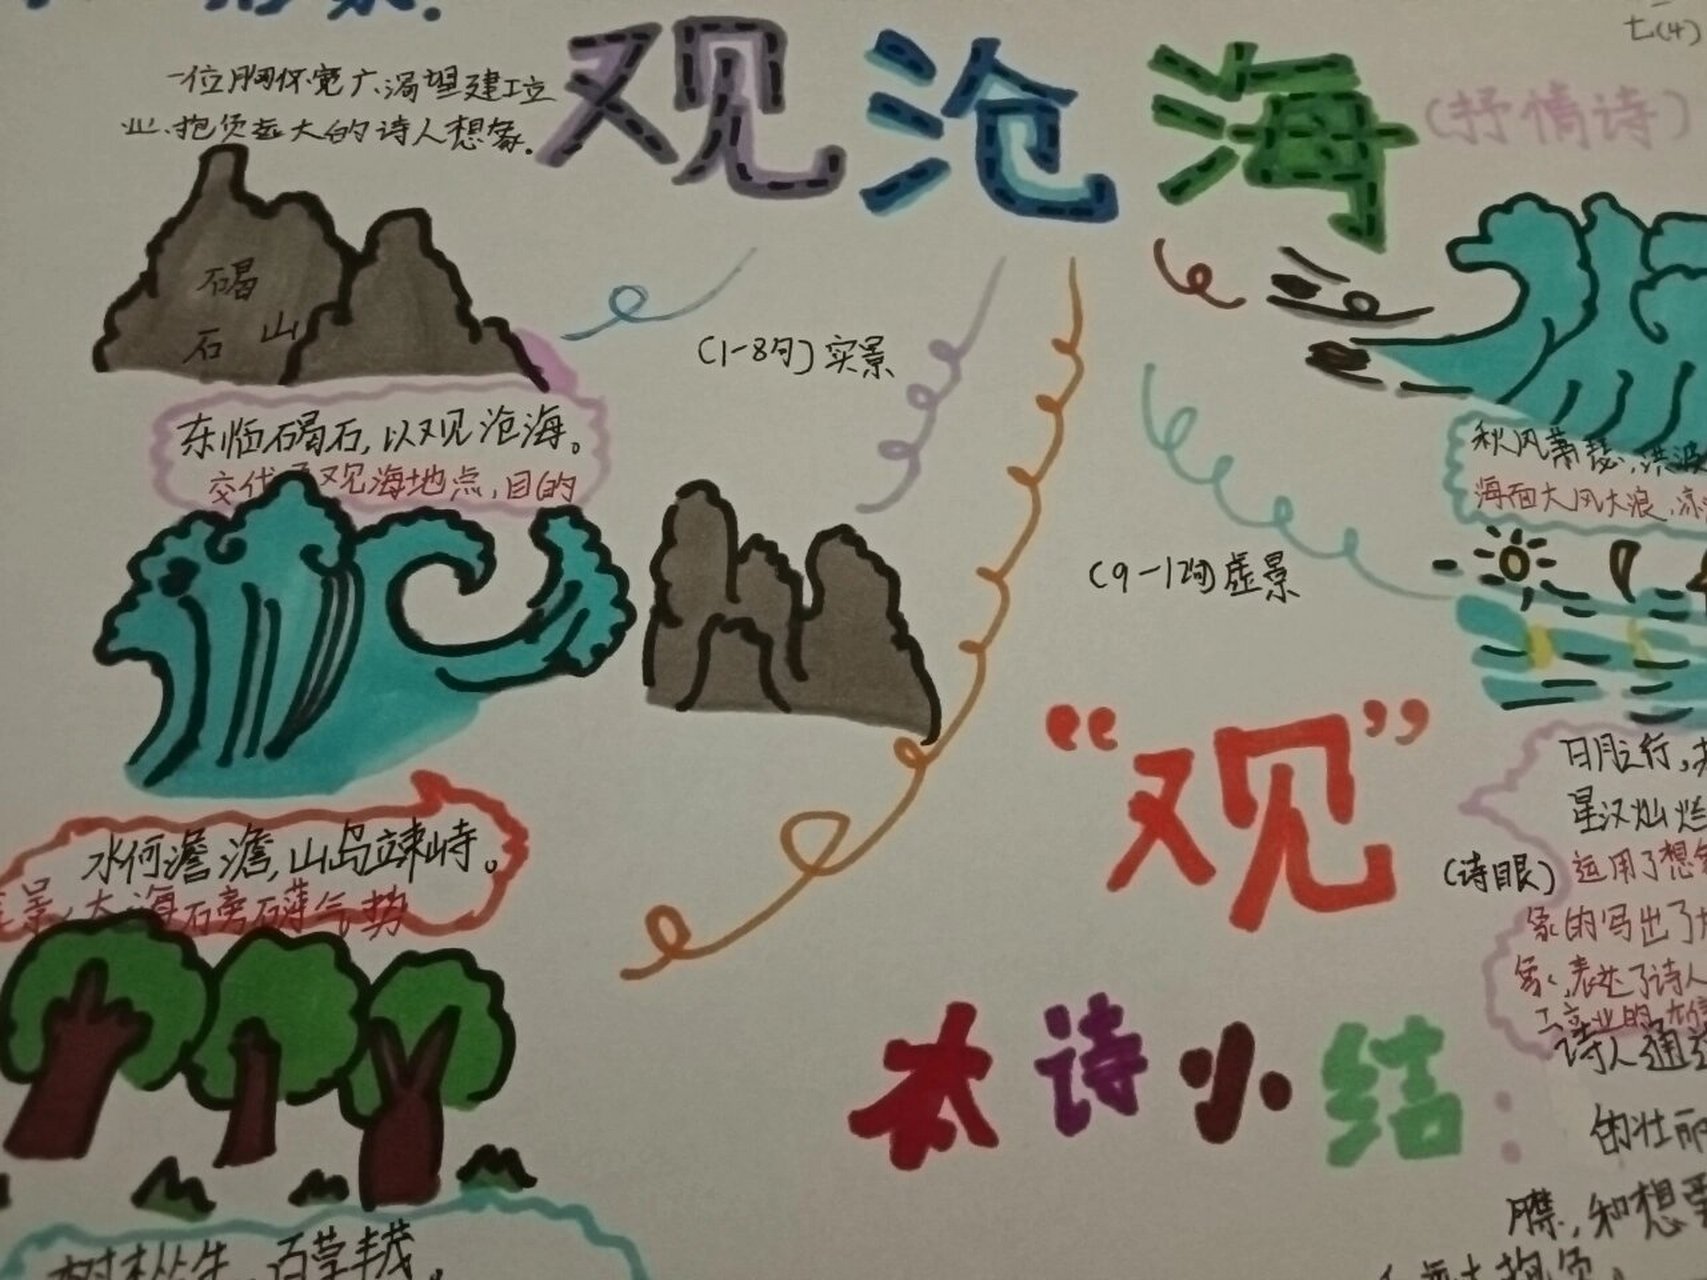 形象.
七(4)
一位胸怀宽广、渴望建工立
业、抱负远大的诗人想象.
观沧海
(抒情诗)
碣
石山
(1-8句)实景
东临碣石,以观沧海。
交代了观海地点,目的
秋风萧瑟,洪波
海面大风大浪,凉
(9-12句)虚景
“观”
(诗眼)
日月之行,
星汉灿烂
运用了想象
象的写出了
象,表达了诗人
工立业的
水何澹澹,山岛竦峙。
景:大海石旁礴气势
本诗小结:
诗人通
的壮丽
襟,和想要
远大抱负.
树木丛生,百草丰茂。